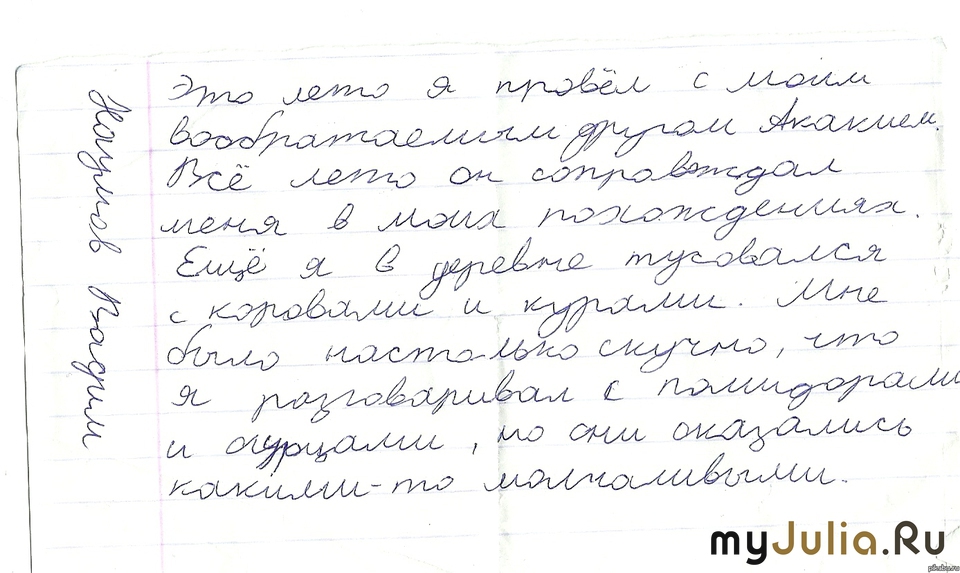 Это лето я провёл с моим
воображаемым другом Акакием.
Всё лето он сопровждал
меня в моих похождениях.
Ещё я в деревне тусовался
с коровами и курами. Мне
было настолько скучно, что
я разговаривал с помидорами
и огурцами, но они оказались
какими-то молчаливыми.
Наумов Вадим
myJulia.Ru
pikabu.ru